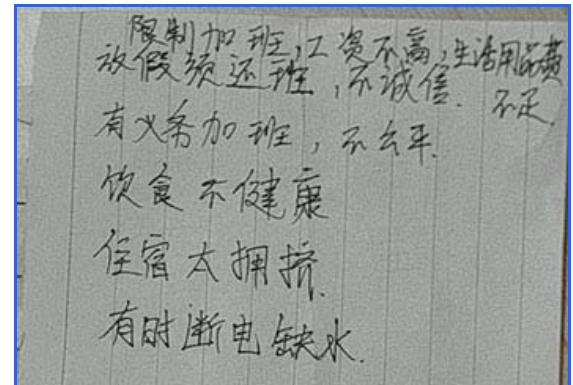 限制加班,工资不高,生活用品费
不足.
放假须还班,不诚信.
有义务加班,不公平.
饮食不健康
住宿太拥挤.
有时断电缺水.